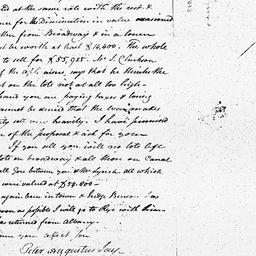 ed at the same rate with the rest. &
for the Discrimination in value occasioned
from Broadway & in a lower
be worth at least $14,600. The whole
to sell for $55,925. Mr. J. Clarkson
of the says, that he thinks the
on the lots not at all too high.
you are paying taxes & losing
cannot be denied that the
sell very heavily. I have promised
of the proposal & ask for your
If you sell you will no lots left
lots on broadway & all those on Canal
all between you & Mr. Lynch all which
were valued at $59.800—
again been in town & Judge Benson has
soon as possible I will go to Rye with him
has returned from Albany.
Peter Augustus Jay.